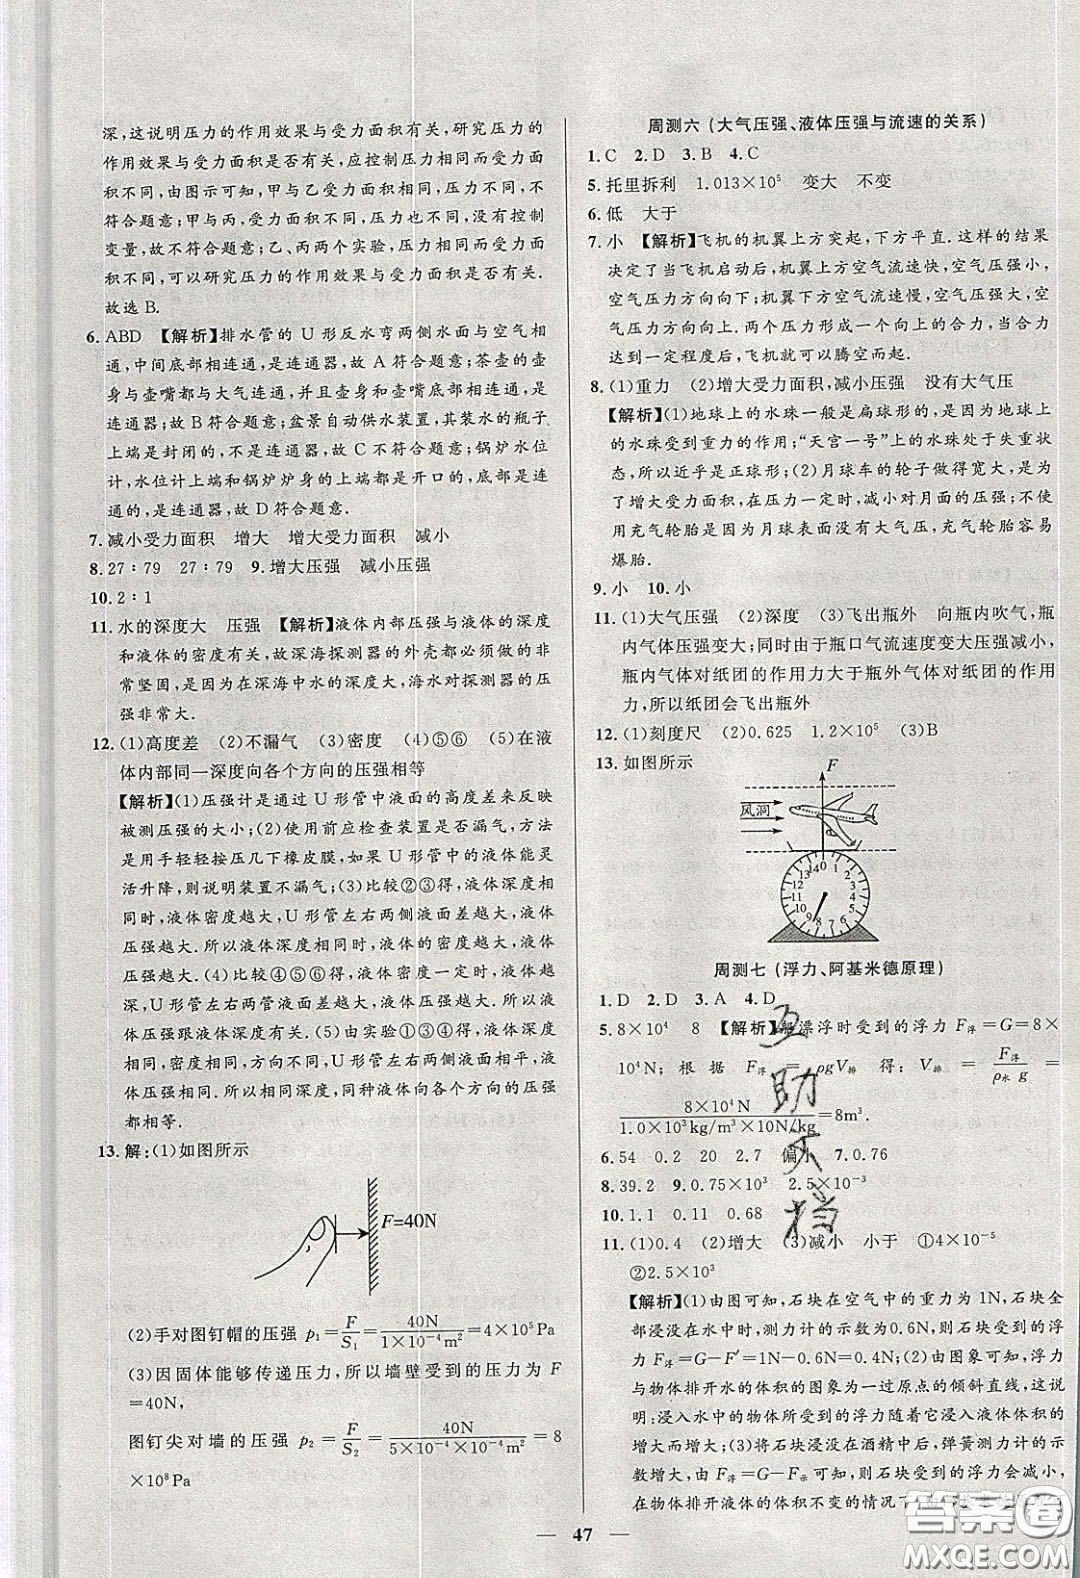 深,这说明压力的作用效果与受力面积有关,研究压力的
作用效果与受力面积是否有关,应控制压力相同而受力
面积不同,由图示可知,甲与乙受力面积不同,压力不同,不
符合题意;甲与丙,受力面积不同,压力相同,没有控制
变量,故不符合题意;乙、丙两个实验,压力相同而受力
面积不同,可以研究压力的作用效果与受力面积是否有关.
故选B.
6. ABD 【解析】排水管的U形反水弯两侧水面与空气相
通,中间底部相连通,是连通器,故A符合题意;茶壶的壶
身与壶嘴都与大气连通,并且壶身和壶嘴底部相连通,是连
通器,故B符合题意;盆景自动供水装置,其装水的瓶子
上端是封闭的,不是连通器,故C不符合题意;锅炉水位
计,水位计上端和锅炉炉身的上端都是开口的,底部是连
通的,是连通器,故D符合题意.
7. 减小受力面积 增大 增大受力面积 减小
8. 27∶79 27∶79 9. 增大压强 减小压强
10. 2∶1
11. 水的深度大 压强 【解析】液体内部压强与液体的深度
和液体的密度有关,故深海探测器的外壳都必须做的非
常坚固,是因为在深海中水的深度大,海水对探测器的压
强非常大.
12. (1)高度差 (2)不漏气 (3)密度 (4)⑤⑥ (5)在液
体内部同一深度向各个方向的压强相等
【解析】(1)压强计是通过U形管中液面的高度差来反映
被测压强的大小;(2)使用前应检查装置是否漏气,方法
是用手轻轻按压几下橡皮膜,如果U形管中的液体能灵
活升降,则说明装置不漏气;(3)比较②③得,液体深度相
同时,液体密度越大,U形管左右两侧液面差越大,液体
压强越大.所以液体深度相同时,液体的密度越大,液体
压强越大.(4)比较④⑤⑥得,液体密度相同,液体深度越
深,U形管左右两侧液面差越大,液体压强越大.所以,液
体压强跟液体深度有关.(5)由实验①③④得,液体密度
相同,深度相同,方向不同,U形管左右两侧液面相平,压
强相同.所以,同种液体同一深度向各个方向的压强
都相等.
13. 解:(1)如图所示
F=40N
(2)手对图钉帽的压强 p₁=F/S₁=40N/(1×10⁻⁴m²)=4×10⁵Pa
(3)因固体能够传递压力,所以墙壁受到的压力为 F
=40N,
图钉尖对墙的压强 p₂=F/S₂=40N/(5×10⁻⁴×10⁻⁴m²)=8
×10⁸Pa
周测六(大气压强、液体压强与流速的关系)
1. C 2. D 3. B 4. C
5. 托里拆利 1.013×10⁵ 变大 不变
6. 低 大于
7. 小 【解析】飞机的机翼上方突起,下方平直.这样的结果
决定了当飞机启动后,机翼上方空气流速快,空气压强小,
空气压力方向向下;机翼下方空气流速慢,空气压强大,空
气压力方向向上.两个压力形成一个向上的合力,当合力
达到一定程度后,飞机就可以腾空而起.
8. (1)重力 (2)增大受力面积,减小压强 没有大气压
【解析】(1)地球上的水珠一般是扁球形的,是因为地球上
的水珠受到重力的作用;“天宫一号”上的水珠处于失重状
态,所以近乎是正球形;(2)月球车的轮子做得宽大,是为
了增大受力面积,在压力一定时,减小对月面的压强;不使
用充气轮胎是因为月球表面没有大气压,充气轮胎容易
爆胎.
9. 小 10. 小
11. (1)大气压强 (2)深度 (3)飞出瓶外 向瓶内吹气,瓶
内气体压强变大;同时由于瓶口气流速度变大压强减小,
瓶内气体对纸团的作用力大于瓶外气体对纸团的作用
力,所以纸团会飞出瓶外
12. (1)刻度尺 (2)0.625 1.2×10⁵ (3)B
13. 如图所示
F
风洞
14 0 1 2 3 4 5 6 7 8 9 10 11 12 13
周测七(浮力、阿基米德原理)
1. D 2. D 3. A 4. D
5. 8×10⁴ 8 【解析】漂浮时受到的浮力 F浮=G=8×
10⁴N; 根据 F浮=ρgV排 得: V排=F浮/(ρ水 g)=
8×10⁴N/(1.0×10³kg/m³×10N/kg)=8m³.
6. 54 0.2 20 2.7 偏小 7. 0.76
8. 39.2 9. 0.75×10³ 2.5×10⁻³
10. 1.1 0.11 0.68
11. (1)0.4 (2)增大 (3)减小 小于 ①4×10⁻⁵
②2.5×10³
【解析】(1)由图可知,石块在空气中的重力为1N,石块全
部浸没在水中时,测力计的示数为0.6N,则石块受到的浮
力 F浮=G-F′=1N-0.6N=0.4N;(2)由图象可知,浮力
与物体排开水的体积的图象为一过原点的倾斜直线,这说
明:浸入水中的物体所受到的浮力随着它浸入液体体积的
增大而增大;(3)将石块浸没在酒精中后,弹簧测力计的示
数增大,由 F浮=G-F示可知,石块受到的浮力会减小,
在物体排开液体的体积不变的情况下
47
互
助
文
档
答案圈
MXQE.COM